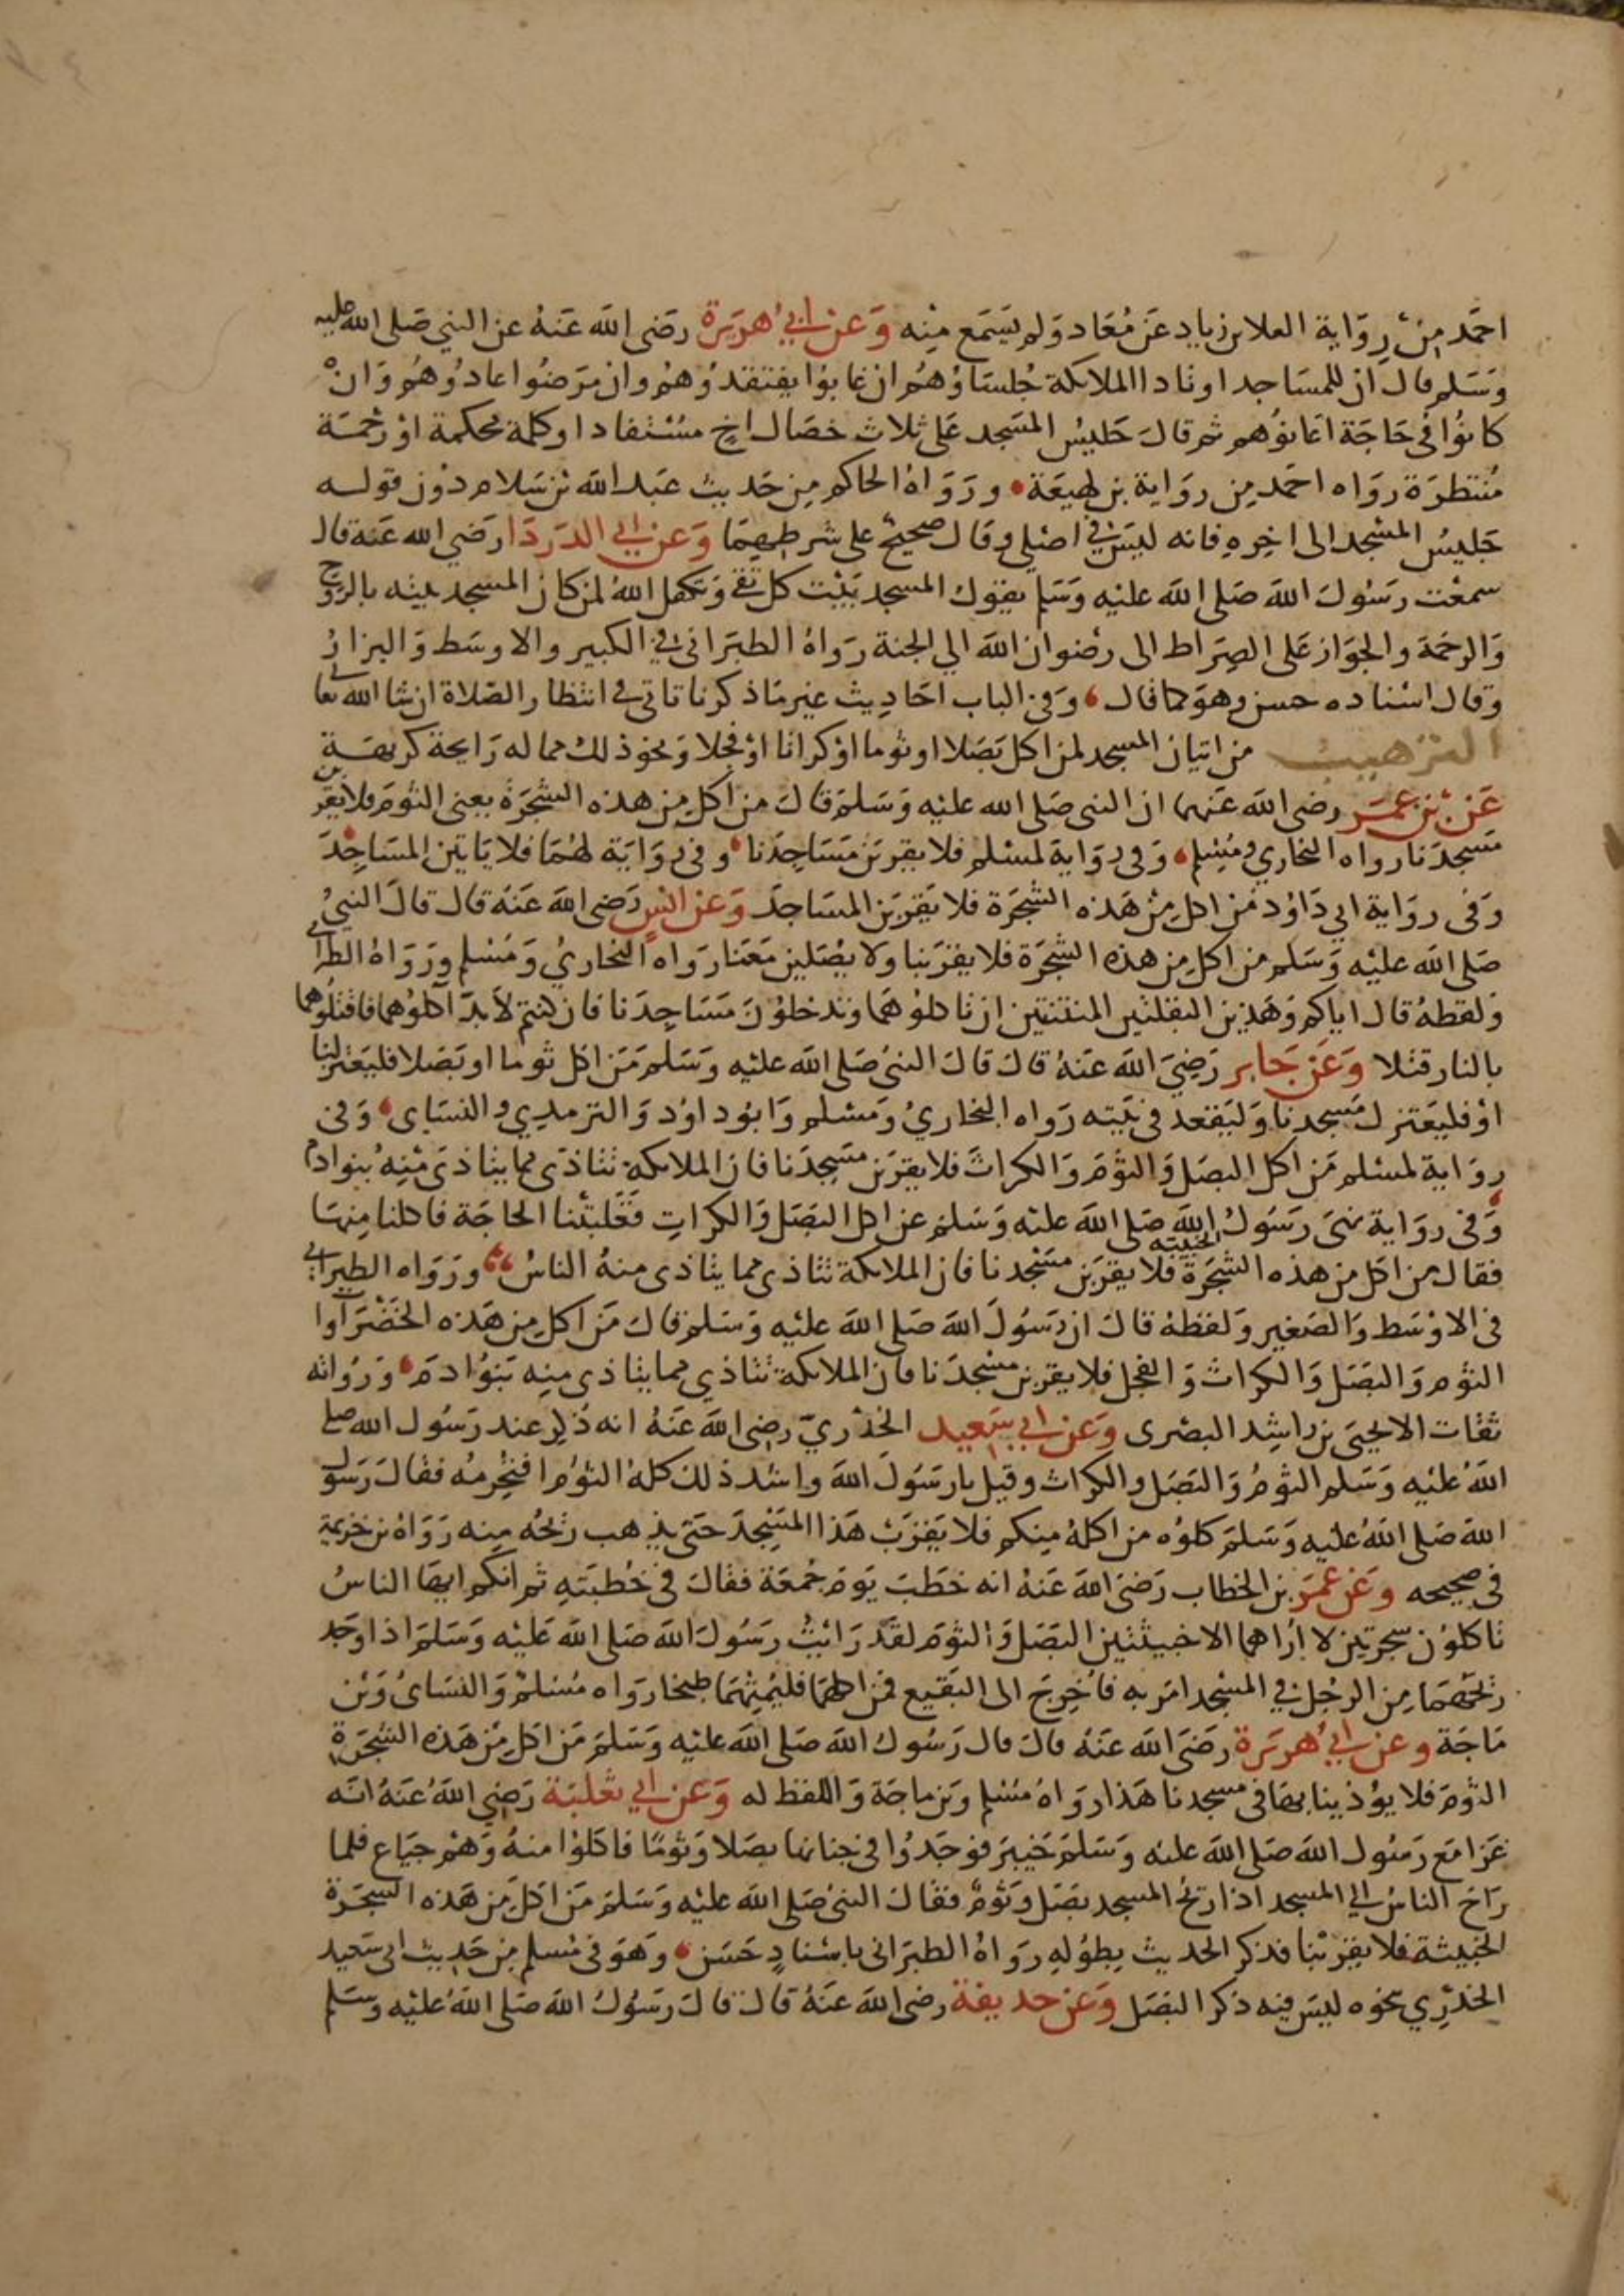 احمد من رواية العلا بن زياد عن معاد ولم يسمع منه وعن ابي هريرة رضى الله عنه عن النبي صلى الله عليه
وسلم قال ان للمساجد اوتادا الملايكة جلساؤهم ان غابوا يفتقدوهم وان مرضوا عادوهم وان
كانوا فى حاجة اعانوهم ثم قال جليس المسجد على ثلاث خصال اخ مستفاد او كلمة محكمة او رحمة
منتظرة رواه احمد من رواية بن لهيعة ورواه الحاكم من حديث عبد الله بن سلام دون قوله
جليس المسجد الى اخره فانه ليس في اصلي وقال صحيح على شرطهما وعن ابي الدردا رضي الله عنه قال
سمعت رسول الله صلى الله عليه وسلم يقول المسجد بيت كل تقي وتكفل الله لمن كان المسجد بيته بالروح
والرحمة والجواز على الصراط الى رضوان الله الي الجنة رواه الطبرانى في الكبير والاوسط والبزار
وقال اسناده حسن وهو كما قال وفى الباب احاديث غير ما ذكرنا تاتى فى انتظار الصلاة ان شا الله تعالى
الترهيب من اتيان المسجد لمن اكل بصلا او ثوما او كراثا او فجلا ونحو ذلك مما له رايحة كريهة
عن بن عمر رضى الله عنهما ان النبى صلى الله عليه وسلم قال من اكل من هذه الشجرة يعنى الثوم فلا يقربن
مسجدنا رواه البخاري ومسلم وفى رواية لمسلم فلا يقربن مساجدنا وفى رواية لهما فلا ياتين المساجد
وفى رواية ابي داود من اكل من هذه الشجرة فلا يقربن المساجد وعن انس رضى الله عنه قال قال النبي
صلى الله عليه وسلم من اكل من هذه الشجرة فلا يقربنا ولا يصلين معنا رواه البخاري ومسلم ورواه الطبرانى
ولفظه قال اياكم وهذين البقلتين المنتنتين ان تاكلوهما وتدخلون مساجدنا فان كنتم لا بد آكلوهما فاقتلوهما
بالنار قتلا وعن جابر رضي الله عنه قال قال النبى صلى الله عليه وسلم من اكل ثوما او بصلا فليعتزلنا
او فليعتزل مسجدنا وليقعد فى بيته رواه البخاري ومسلم وابوداود والترمدي والنساى وفى
رواية لمسلم من اكل البصل والثوم والكراث فلا يقربن مسجدنا فان الملايكة تتاذى مما يتاذى منه بنو ادم
وفى رواية نهى رسول الله صلى الله عليه وسلم عن اكل البصل والكراث فغلبتنا الحاجة فاكلنا منها
فقال من اكل من هذه الشجرة الخبيثة فلا يقربن مسجدنا فان الملايكة تتاذى مما يتاذى منه الناس ورواه الطبرانى
فى الاوسط والصغير ولفظه قال ان رسول الله صلى الله عليه وسلم قال من اكل من هذه الخضراوات
الثوم والبصل والكراث والفجل فلا يقربن مسجدنا فان الملايكة تتاذي مما يتاذى منه بنوا دم ورواته
ثقات الا يحيى بن راشد البصرى وعن ابي سعيد الخدري رضى الله عنه انه ذكر عند رسول الله صلى
الله عليه وسلم الثوم والبصل والكراث وقيل يا رسول الله واشد ذلك كله الثوم افتحرمه فقال رسول
الله صلى الله عليه وسلم كلوه من اكله منكم فلا يقرب هذا المسجد حتى يذهب ريحه منه رواه بن خزيمة
فى صحيحه وعن عمر بن الخطاب رضى الله عنه انه خطب يوم جمعة فقال فى خطبته ثم انكم ايها الناس
تاكلون شجرتين لا اراهما الا خبيثتين البصل والثوم لقد رايت رسول الله صلى الله عليه وسلم اذا وجد
ريحهما من الرجل في المسجد امر به فاخرج الى البقيع فمن اكلهما فليمتهما طبخا رواه مسلم والنساى وبن
ماجة وعن ابي هريرة رضى الله عنه قال قال رسول الله صلى الله عليه وسلم من اكل من هذه الشجرة
الثوم فلا يؤذينا بها فى مسجدنا هذا رواه مسلم وبن ماجة واللفظ له وعن ابي ثعلبة رضي الله عنه انه
غزا مع رسول الله صلى الله عليه وسلم خيبر فوجدوا فى جنانها بصلا وثوما فاكلوا منه وهم جياع فلما
راح الناس الي المسجد اذا ريح المسجد بصل وثوم فقال النبى صلى الله عليه وسلم من اكل من هذه الشجرة
الخبيثة فلا يقربنا فذكر الحديث بطوله رواه الطبرانى باسناد حسن وهو فى مسلم من حديث ابى سعيد
الخدري نحوه ليس فيه ذكر البصل وعن حذيفة رضى الله عنه قال قال رسول الله صلى الله عليه وسلم